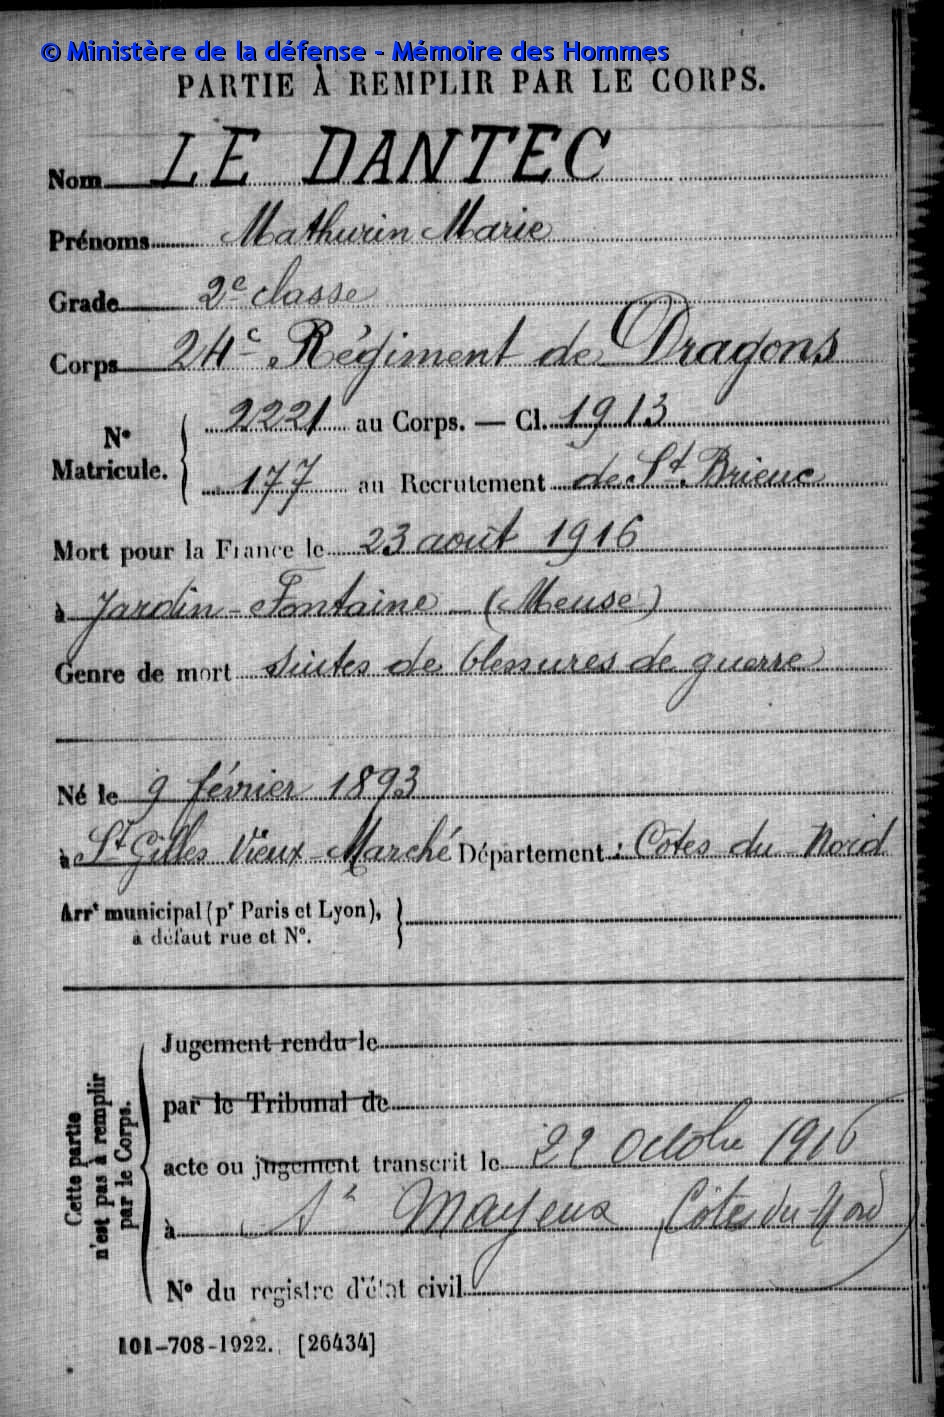 © Ministère de la défense - Mémoire des Hommes
PARTIE À REMPLIR PAR LE CORPS.
Nom LE DANTEC
Prénoms Mathurin Marie
Grade 2e classe
Corps 24e Régiment de Dragons
N° Matricule. 2221 au Corps. — Cl. 1913
177 au Recrutement de St. Brieuc
Mort pour la France le 23 août 1916
à Jardin-Fontaine - (Meuse)
Genre de mort suites de blessures de guerre
Né le 9 février 1893
à St Gilles Vieux-Marché Département : Côtes du Nord
Arrt municipal (pr Paris et Lyon),
à défaut rue et N°.
Cette partie
n'est pas à remplir
par le Corps.
Jugement rendu le
par le Tribunal de
acte ou jugement transcrit le 22 Octobre 1916
à St Mayeux (Côtes du Nord)
N° du registre d'état civil
101-708-1922. [26434]